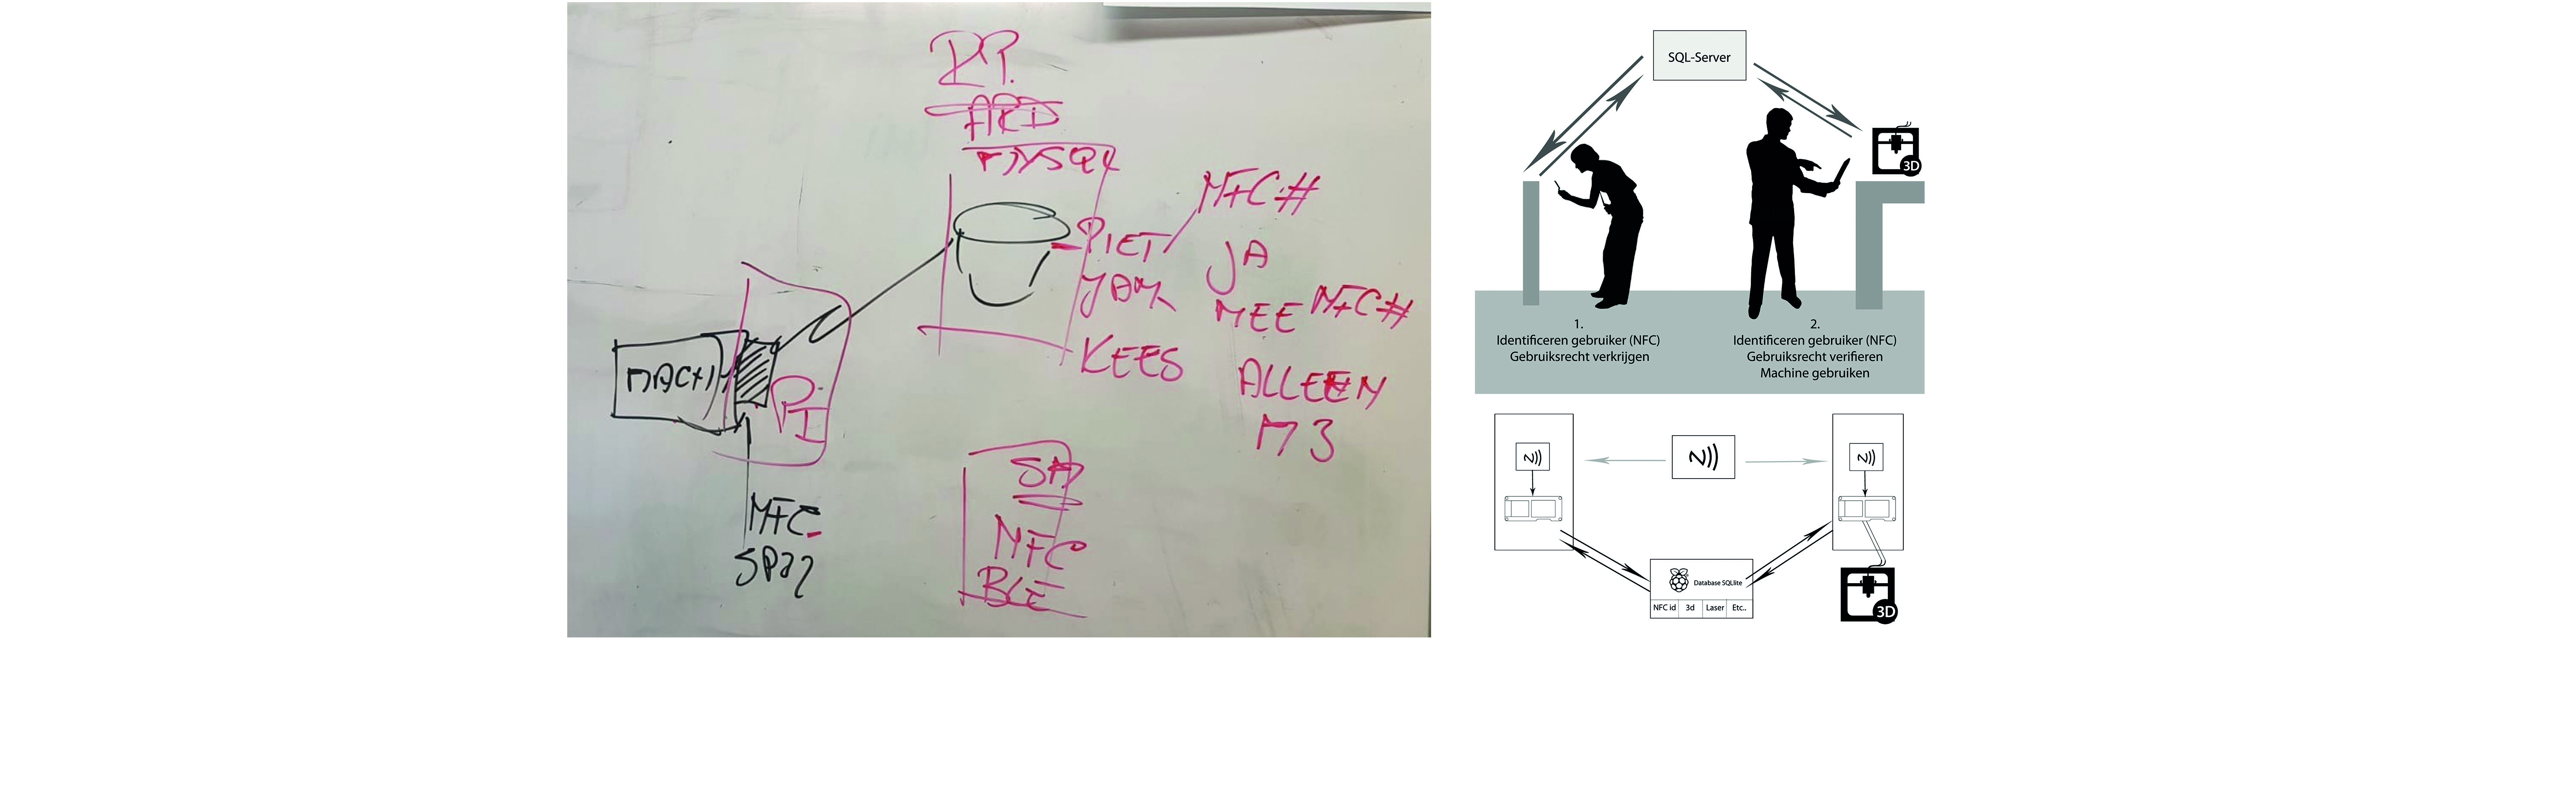 RP.
ARD
MYSQL
NFC#
PIET
JA
JAN
NEE NFC#
KEES
ALLEEN
M3
MACH
PI
NFC
SPAN
SAP
NFC
BLE
SQL-Server
3D
1.
Identificeren gebruiker (NFC)
Gebruiksrecht verkrijgen
2.
Identificeren gebruiker (NFC)
Gebruiksrecht verifieren
Machine gebruiken
Database SQLlite
NFC id
3d
Laser
Etc..
3D